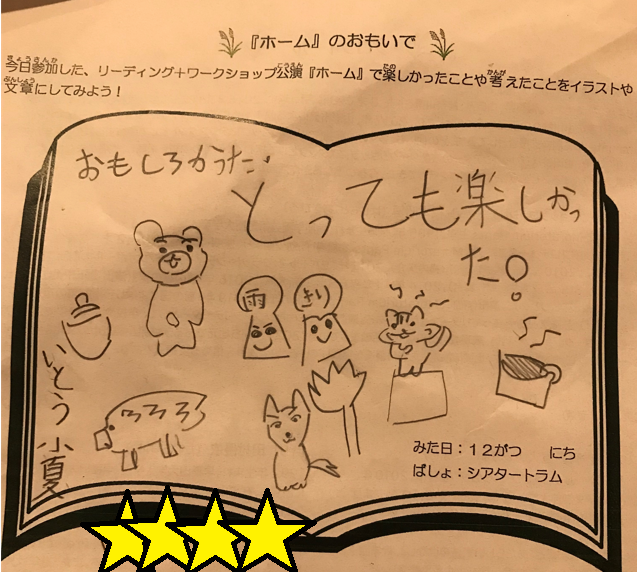 『ホーム』のおもいで
今日参加した、リーディング+ワークショップ公演『ホーム』で楽しかったことや考えたことをイラストや
文章にしてみよう!
おもしろかうた
とっても楽しかっ
た。
雨
きり
いとう小夏
みた日:12がつ にち
ばしょ:シアタートラム